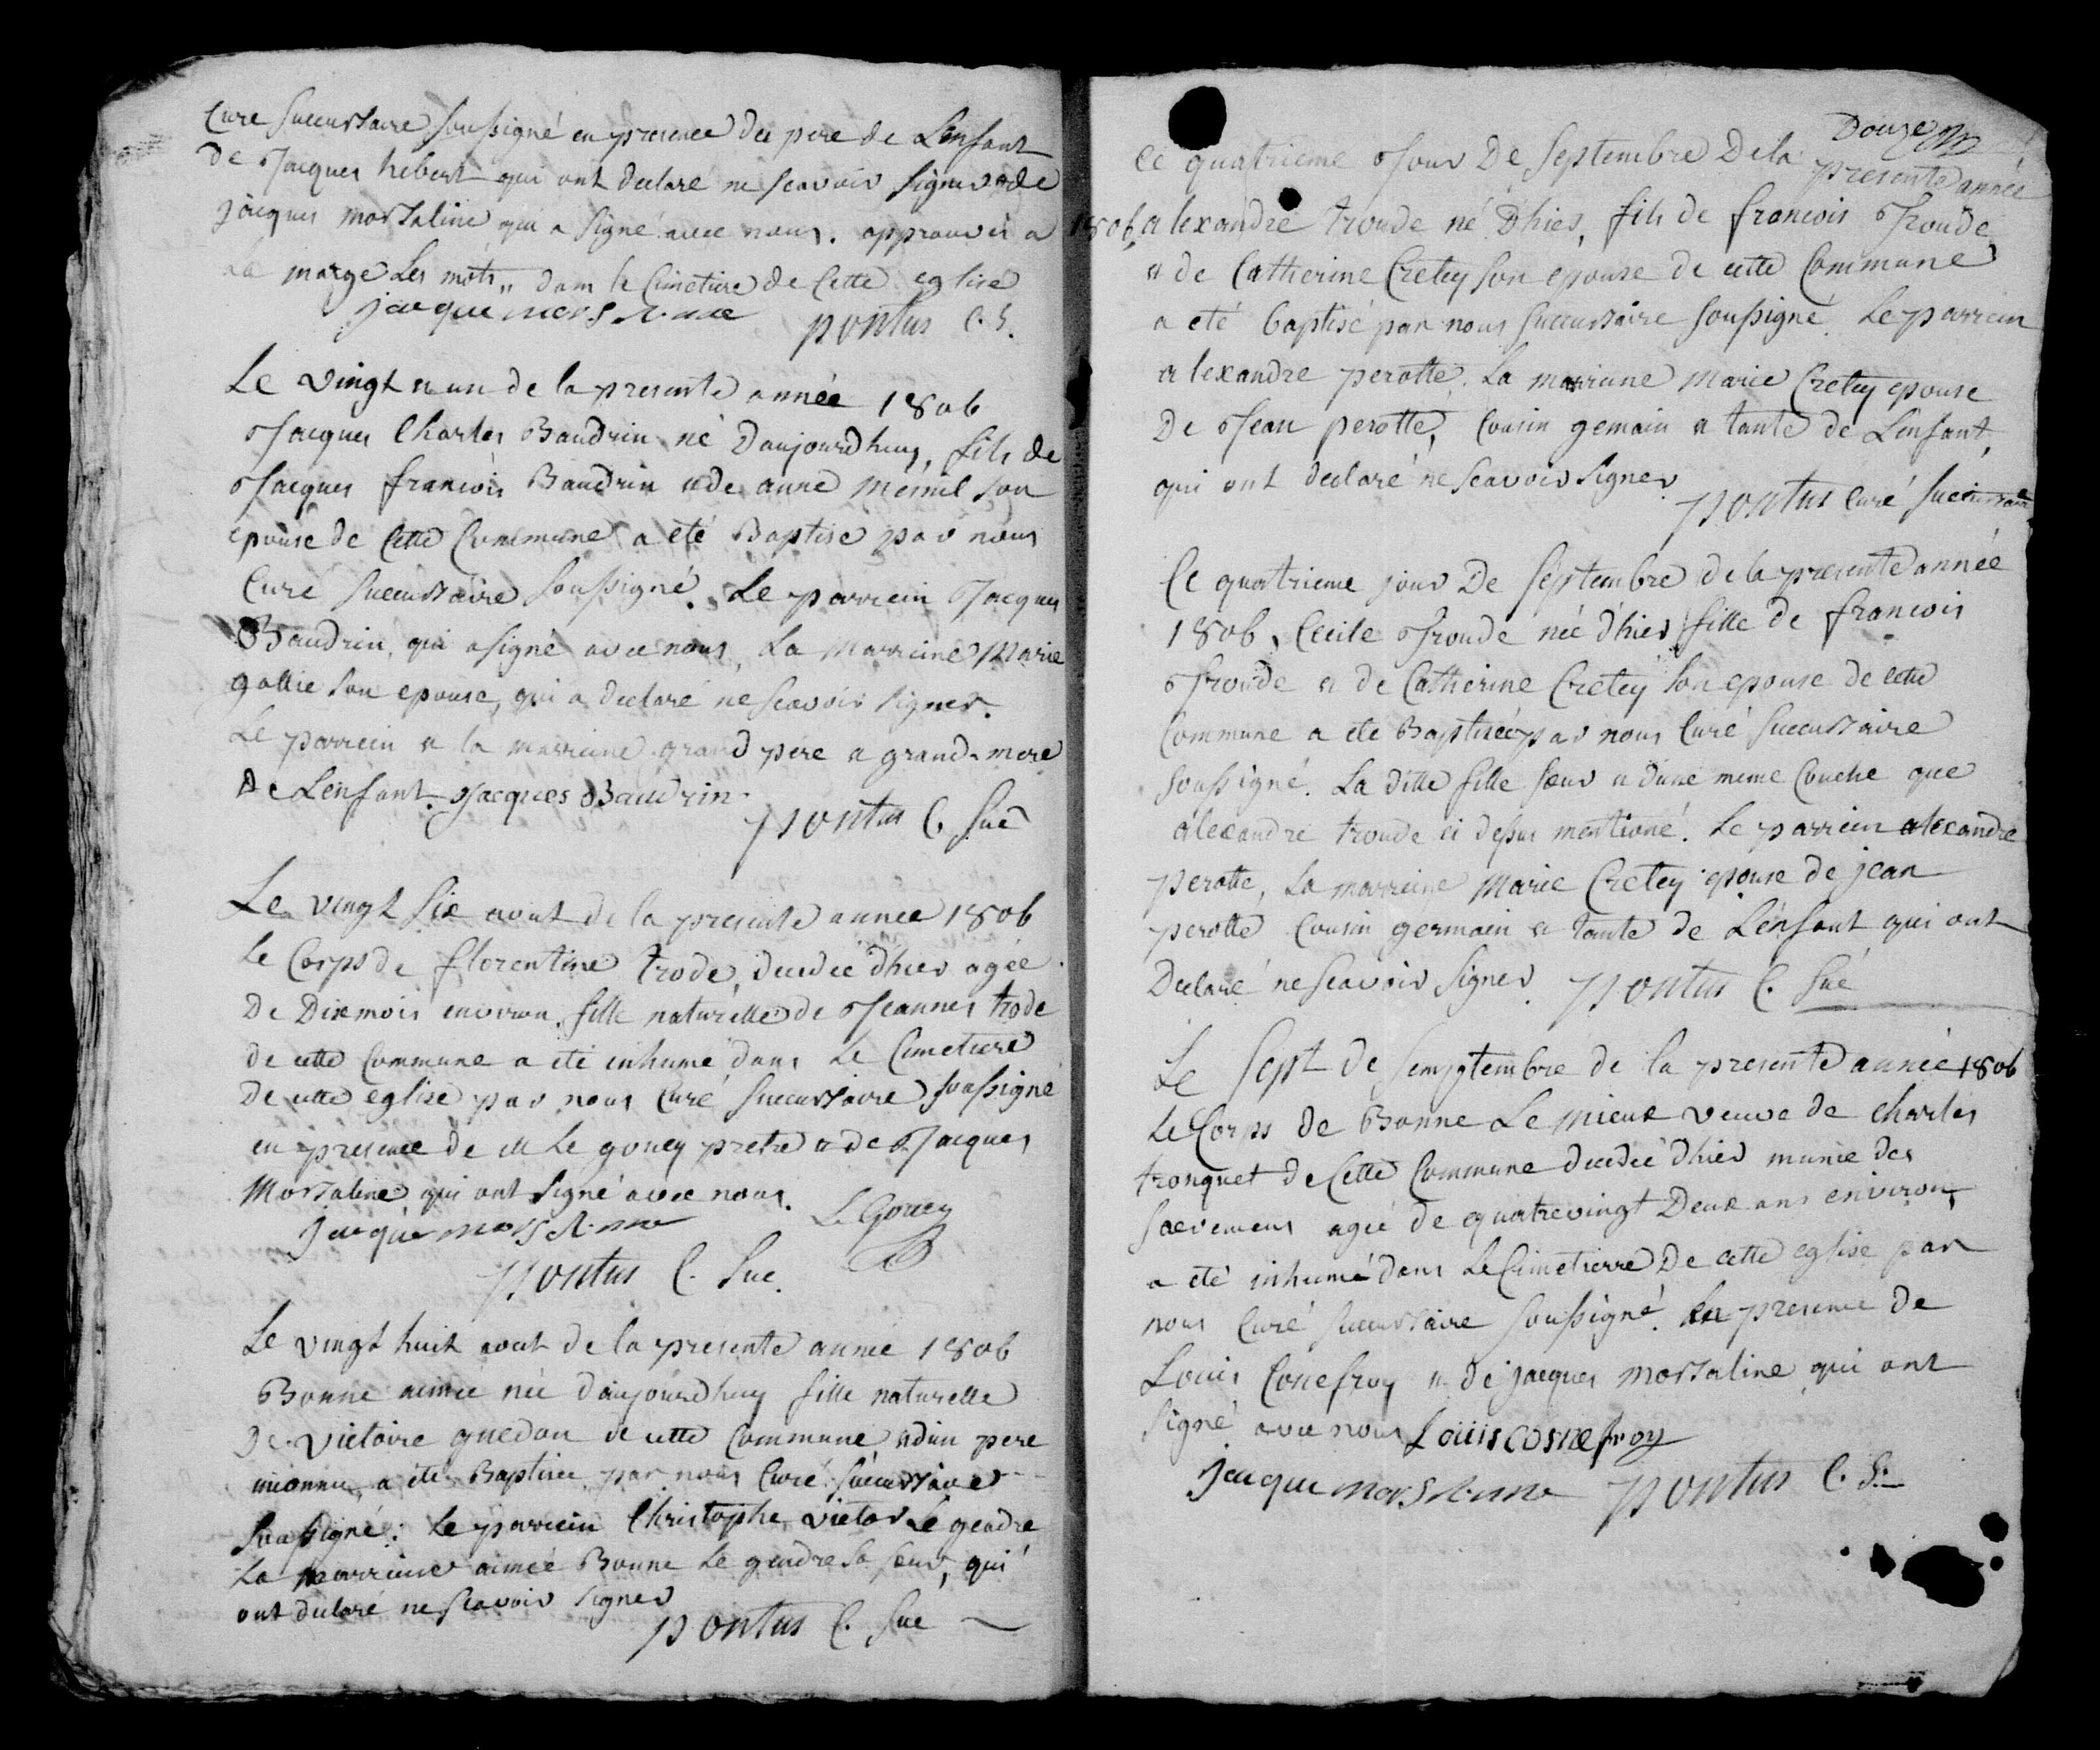 Curé succursaire soussigné en presence du pere de L'enfant
de Jacques hebert qui ont declaré ne scavoir signer et de
jacques morsaline qui a signé avec nous. approuvés a
La marge Les mots,, dans le Cimetiere de Cette eglise
jacque morsaline pontus C. S.
Le vingt et un de la presente année 1806
Jacques Charles Baudrin né Daujourdhuy, fils de
Jacques francois Baudrin et de anne mesnil son
epouse de Cette Commune a eté Baptisé par nous
Curé succursaire soussigné. Le parrein Jacques
Baudrin, qui a signé avec nous, La marreine Marie
gallie son epouse, qui a declaré ne scavoir signer.
Le parrein et la marreine grand pere et grand-mere
De L'enfant. Jacques Baudrin
pontus C. suc
Le vingt six aout de la presente année 1806
le Corps de florentine trode, decedée d'hier agée
De Dix mois environ, fille naturelle de Jeannes trode
de cette Commune a eté inhumé dans Le Cimetiere
De cette eglise par nous Curé succursaire soussigné
en presence de M Le gouey pretre et de Jacques
Morsaline qui ont signé avec nous.
jacque morsaline L. Gouey
pontus C. Suc.
Le vingt huit aout de la presente année 1806
Bonne aimée née d'aujourdhuy fille naturelle
De victoire guedon de cette Commune et d'un pere
inconnu, a eté Baptisée par nous Curé succursaire
soussigné: Le parrein Christophe victor Le gendre
La marreine aimée Bonne Le gendre sa sœur, qui
ont declaré ne scavoir signer
pontus C. Suc
Douze
Ce quatrieme Jour De septembre De la presente année
1806, alexandre troude né D'hier, fils de francois Troude
et de Catherine Cretey son epouse de cette Commune
a eté baptisé par nous succursaire soussigné. Le parrein
alexandre perotte. La marreine marie Cretey epouse
De Jean perotte, Cousin gemain et tante de L'enfant,
qui ont declaré ne scavoir signer
pontus Curé succursaire
Ce quatrieme jour De septembre de la presente année
1806, Cecile Troude née d'hier fille de francois
Troude et de Catherine Cretey son epouse de cette
Commune a eté Baptisée par nous Curé succursaire
soussigné. La ditte fille sœur et d'une meme Couche que
alexandre troude ci dessus mentioné. Le parrein alexandre
perotte, La marreine Marie Cretey epouse de jean
perotte Cousin germain et tante de L'enfant qui ont
Declaré ne scavoir signer pontus C. Suc
Le sept de semptembre de la presente année 1806
Le Corps de Bonne Le mieux veuve de charles
tronquet de Cette Commune decedée d'hier munie des
sacremens agée de quatrevingt Deux ans environ,
a eté inhumé dans Le Cimetierre De cette eglise par
nous Curé succursaire soussigné. En presence de
Louis Conefroy et de jacques morsaline qui ont
signé avec nous Louis cosnefroy
jacque morsaline pontus C. S.